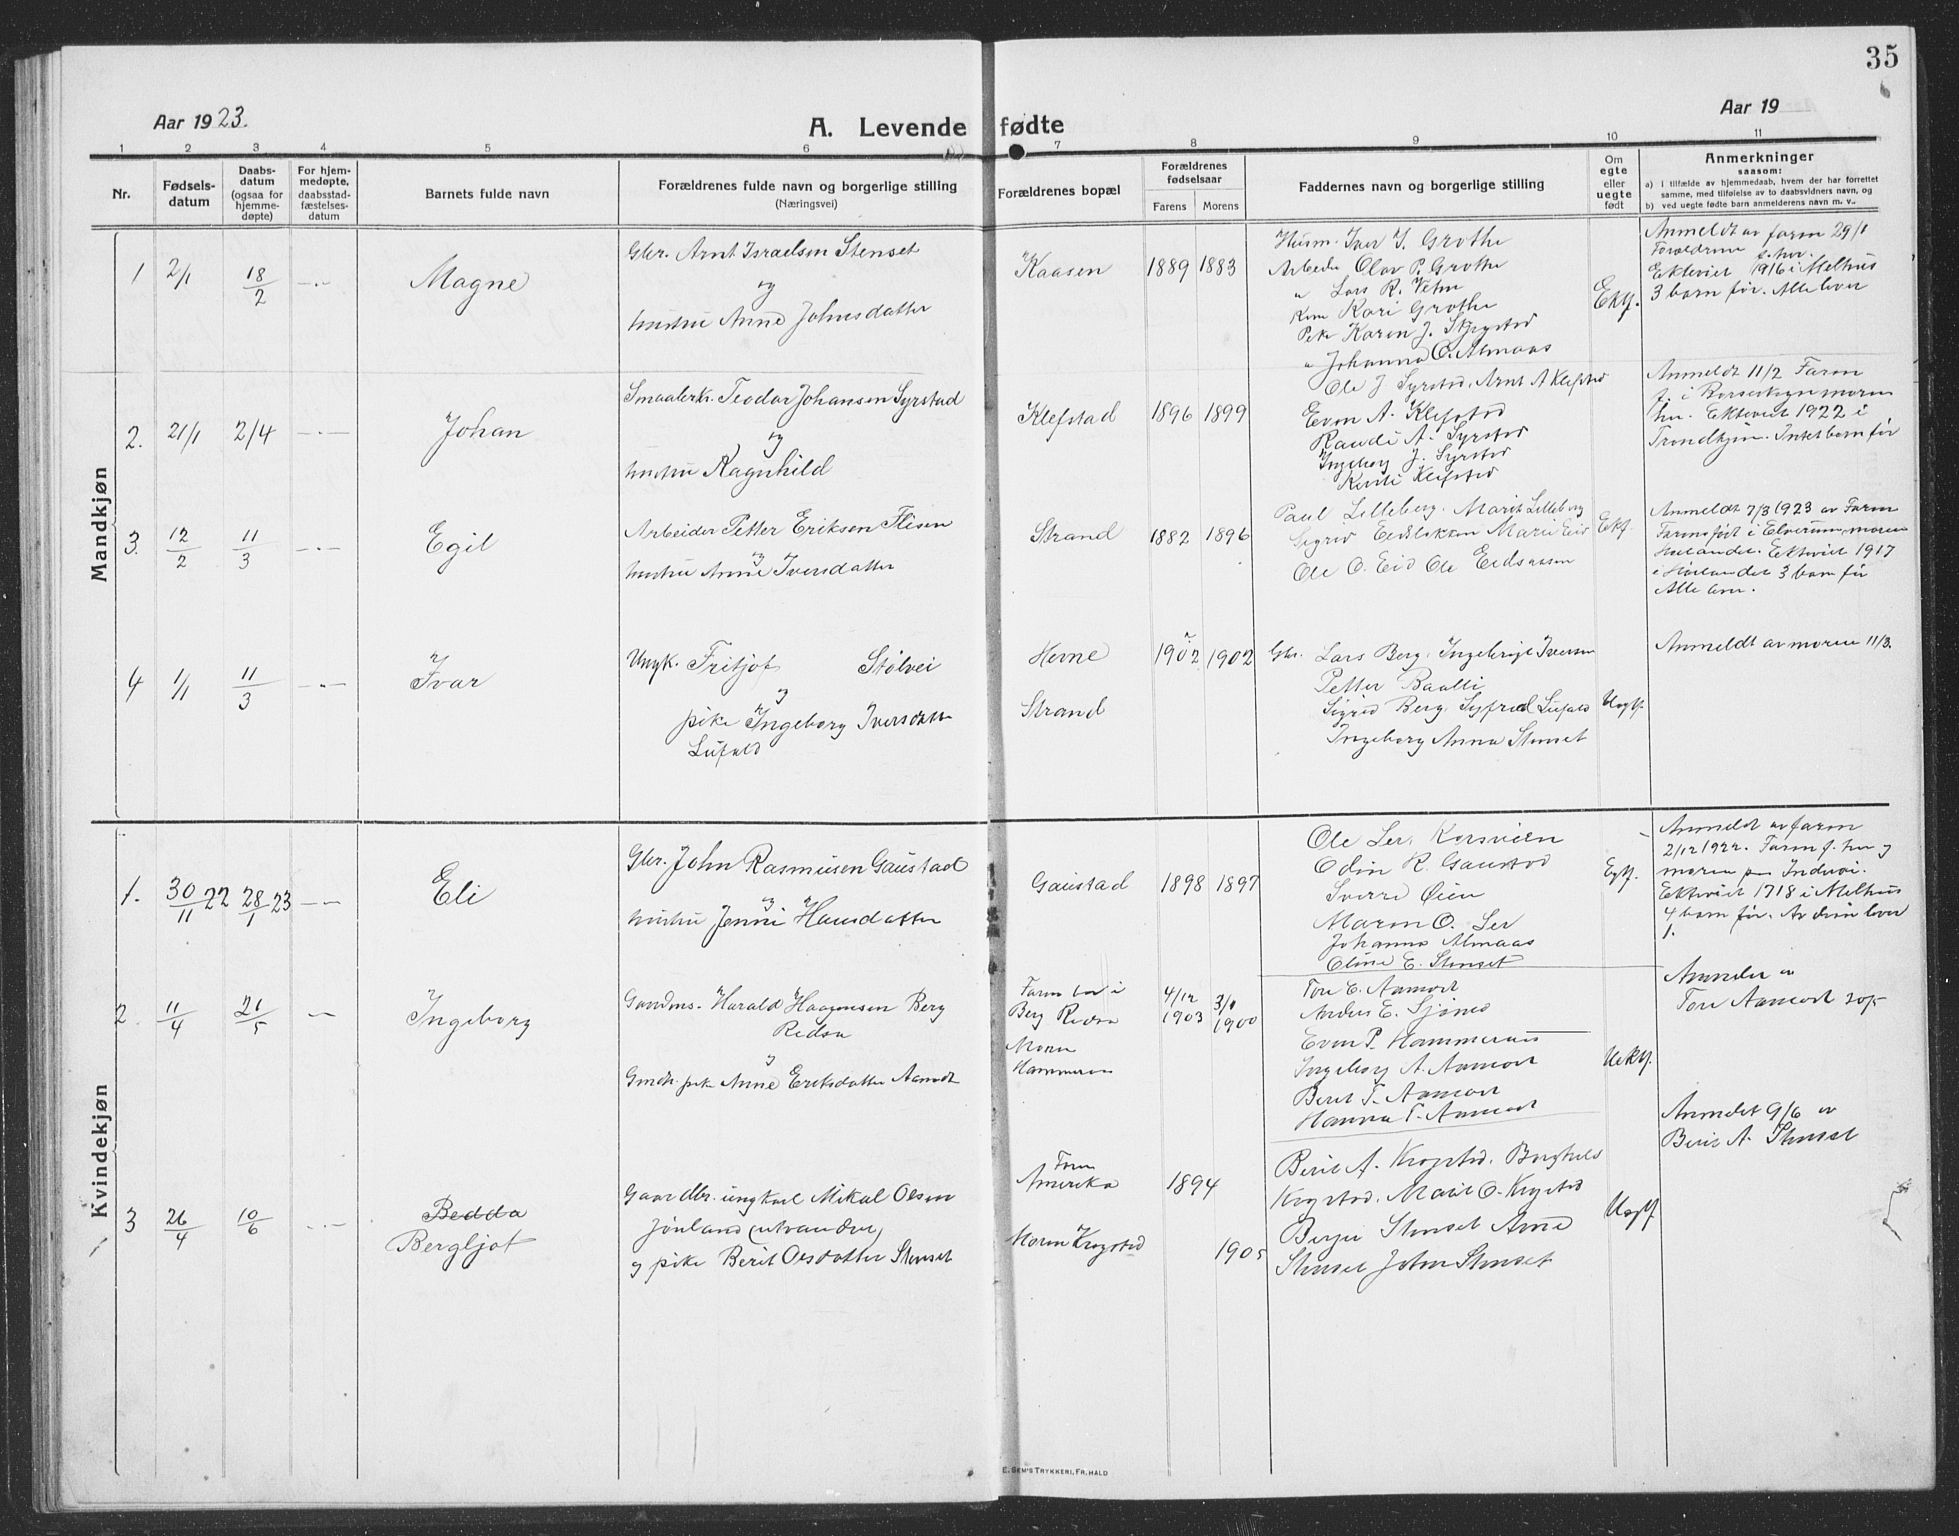 35
Aar 1923.
A. Levende fødte
Aar 19
1 2 3 4 5 6 7 8 9 10 11
Nr.
Fødsels-
datum
Daabs-
datum
(ogsaa for
hjemme-
døpte)
For hjem-
medøpte,
daabsstad-
fæstelses-
datum
Barnets fulde navn
Forældrenes fulde navn og borgerlige stilling
(Næringsvei)
Forældrenes bopæl
Forældrenes
fødselsaar
Farens Morens
Faddernes navn og borgerlige stilling
Om
egte
eller
uegte
født
Anmerkninger
saasom:
a) i tilfælde av hjemmedaab, hvem der har forrettet
samme, med tilføielse av to daabsvidners navn, og
b) ved uegte fødte barn anmelderens navn m. v..
Mandkjøn
1 2/1 18/2 -"- Magne
Gbr. Arnt Israelsen Stenset
og
hustru Anne Johnsdatter
Kaasen 1889 1883
Husm. Iver J. Grothe
Arbeider Olav P. Grothe
" Lars R.
Kone Kari Grothe
Pike Karen J.
" Johanna O. Almaas
Ektf.
Anmeldt av faren 29/1
Forældrene f. her.
Ekteviet 1916 i Melhus
3 barn før. Alle lever
2. 21/1 2/4 -"- Johan
Smaabrk. Teodor Johansen Syrstad
og
hustru Ragnhild
Klefstad 1896 1899
Ole J Syrstad, Arnt A Klefstad
Even A. Klefstad
Randi A. Syrstad
Ingeborg J. Syrstad
Kirsti Klefstad
Anmeldt 11/2 Faren
f. i Børseskogn moren
her. Ekteviet 1922 i
Trondhjem. Intet barn før
3. 12/2 11/3 -"- Egil
Arbeider Petter Eriksen Flisen
og
hustru Anne Iversdatter
Strand 1882 1896
Paul Lilleberg, Marit Lilleberg
Sigrid Marie Eid
Ole O. Eid Ole
Ektf.
Anmeldt 7/3 1923 av Faren
Faren født i Elverum, moren
Hølandet. Ekteviet 1917
i Hølandet 3 barn før
Alle lever.
4 1/1 11/3 -"- Ivar
Ungk. Fritjof Stølvei
og
pike Ingeborg Iversdatter
Lufald
Hemne
Strand
1902 1902
Gbr. Lars Berg, Ingebrigt Iversen
Petter Baalli
Sigrid Berg, Sigfred Lufald
Ingeborg Anna Stenset
Uegtf.
Anmeldt av moren 11/3.
Kvindekjøn
1. 30/11 22 28/1 23 -"- Eli
Gbr. John Rasmusen Gaustad
og
hustru Jenni Hansdatter
Gaustad 1898 1897
Ole Ler, Korsveien
Odin R. Gaustad
Sverre Øien
Maren O. Ler
Johanna Almaas
Oline E. Stenset
Egtf.
Anmeldt av faren
2/12 1922. Faren f. her og
moren paa Inderøi.
Ekteviet 1918 i Melhus
4 barn før. Av disse lever
1.
2. 11/4 21/5 - Ingeborg
Gaardms. Harald Haagensen Berg
Redsa
og
Gmdr. pike Anne Eriksdatter Aamodt
Faren bor i
Berg Redsa
Moren
Hammeren
4/12 1903 3/1 1900
Tore E. Aamodt
Anders E. Sjømo
Even P. Hammernes
Ingeborg A. Aamodt
Berit T. Aamodt
Hanna T. Aamodt
Uektf.
Anmeldt av
Tore Aamodt 20/5
3 26/4 10/6 -"- Bedda
Bergljot
Gaardbr. ungkarl Mikal Olsen
Jønland (utvandret)
og pike Berit Olsdatter Stenset
Faren
Amerika
Moren Krogstad
1894 1905
Berit A. Krogstad, Borghild
Krogstad, Marit O. Krogstad
Birger Stenset Arne
Stenset John Stenset
Uegtf.
Anmeldt 9/6 av
Berit A. Stenset
E. SEM'S TRYKKERI, FR.HALD